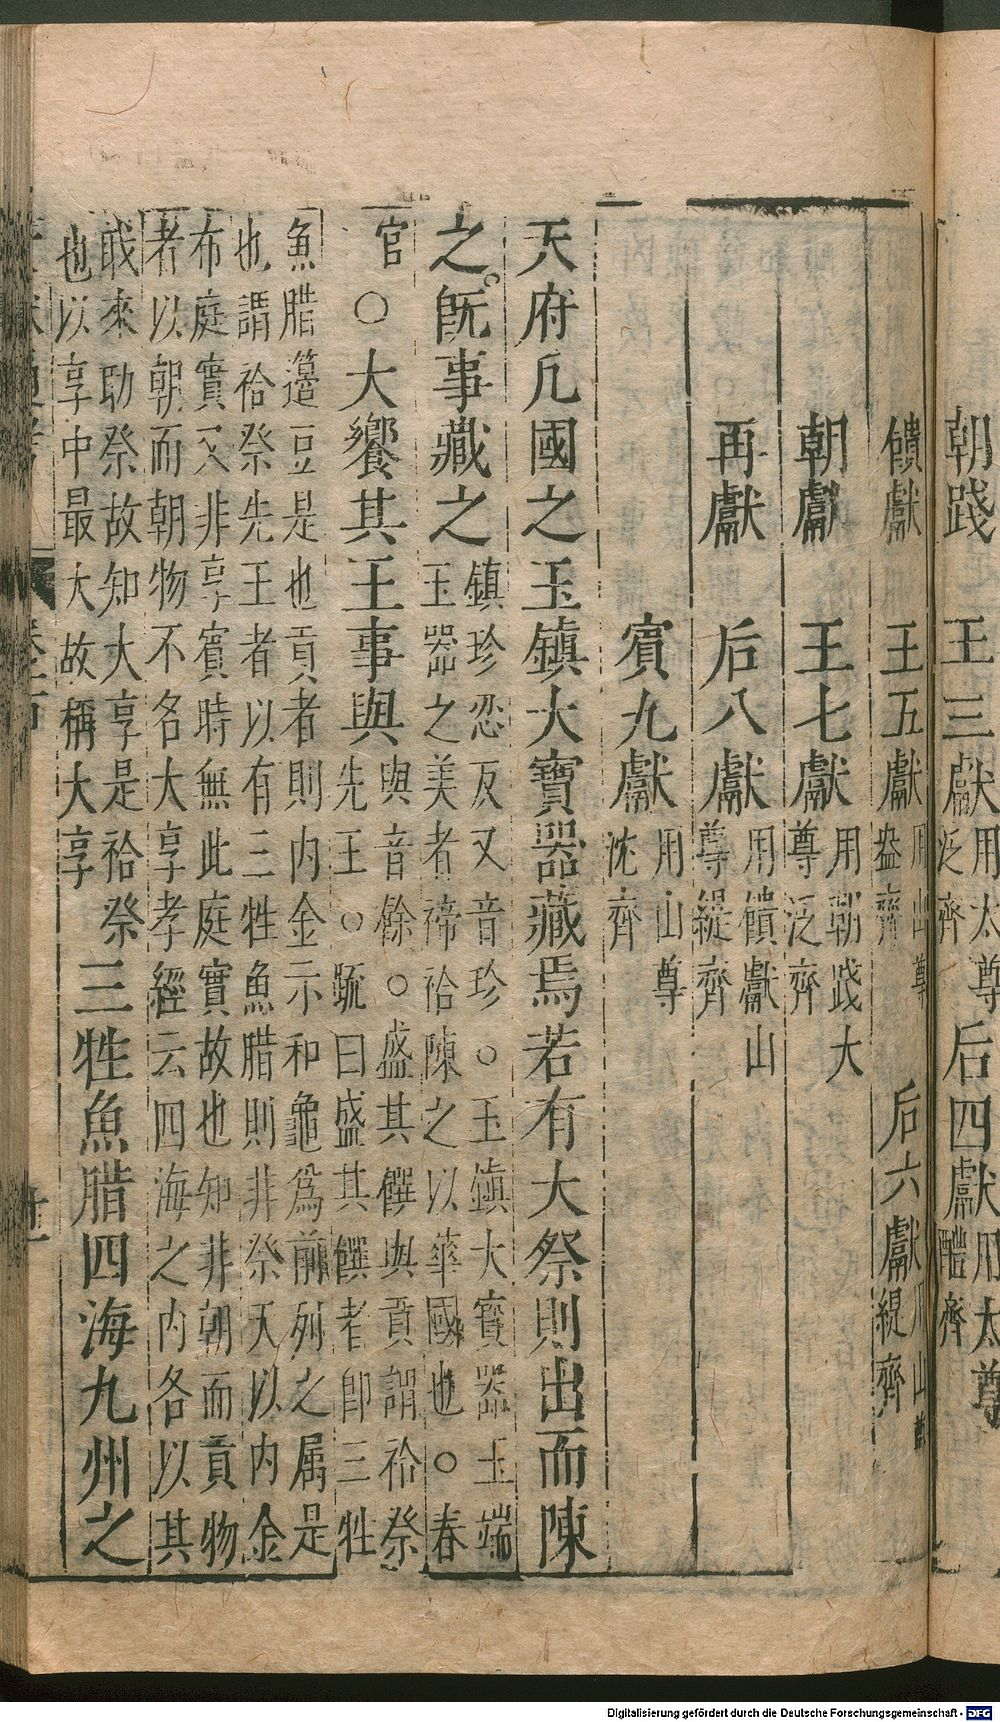 朝踐 王三獻用太尊泛齊 后四獻用太尊醴齊
饋獻 王五獻用山尊盎齊 后六獻用山尊緹齊
朝獻 王七獻用朝踐大尊泛齊
再獻 后八獻用饋獻山尊緹齊
賓九獻用山尊沈齊
天府凡國之玉鎮大寶器藏焉若有大祭則出而陳
之既事藏之鎮珍忍反又音珍○玉鎮大寶器玉瑞玉器之美者禘祫陳之以華國也○春
官○大饗其王事與與音餘○盛其饌與貢謂祫祭先王○疏曰盛其饌者卽三牲
魚腊籩豆是也貢者則內金示和龜爲前列之属是
也謂祫祭先王者以有三牲魚腊則非祭天以內金
布庭實又非享賓時無此庭實故也知非朝而貢物
者以朝而朝物不名大享孝經云四海之內各以其
戢來助祭故知大享是祫祭也以享中最大故稱大享三牲魚腊四海九州之
Digitalisierung gefördert durch die Deutsche Forschungsgemeinschaft - DFG